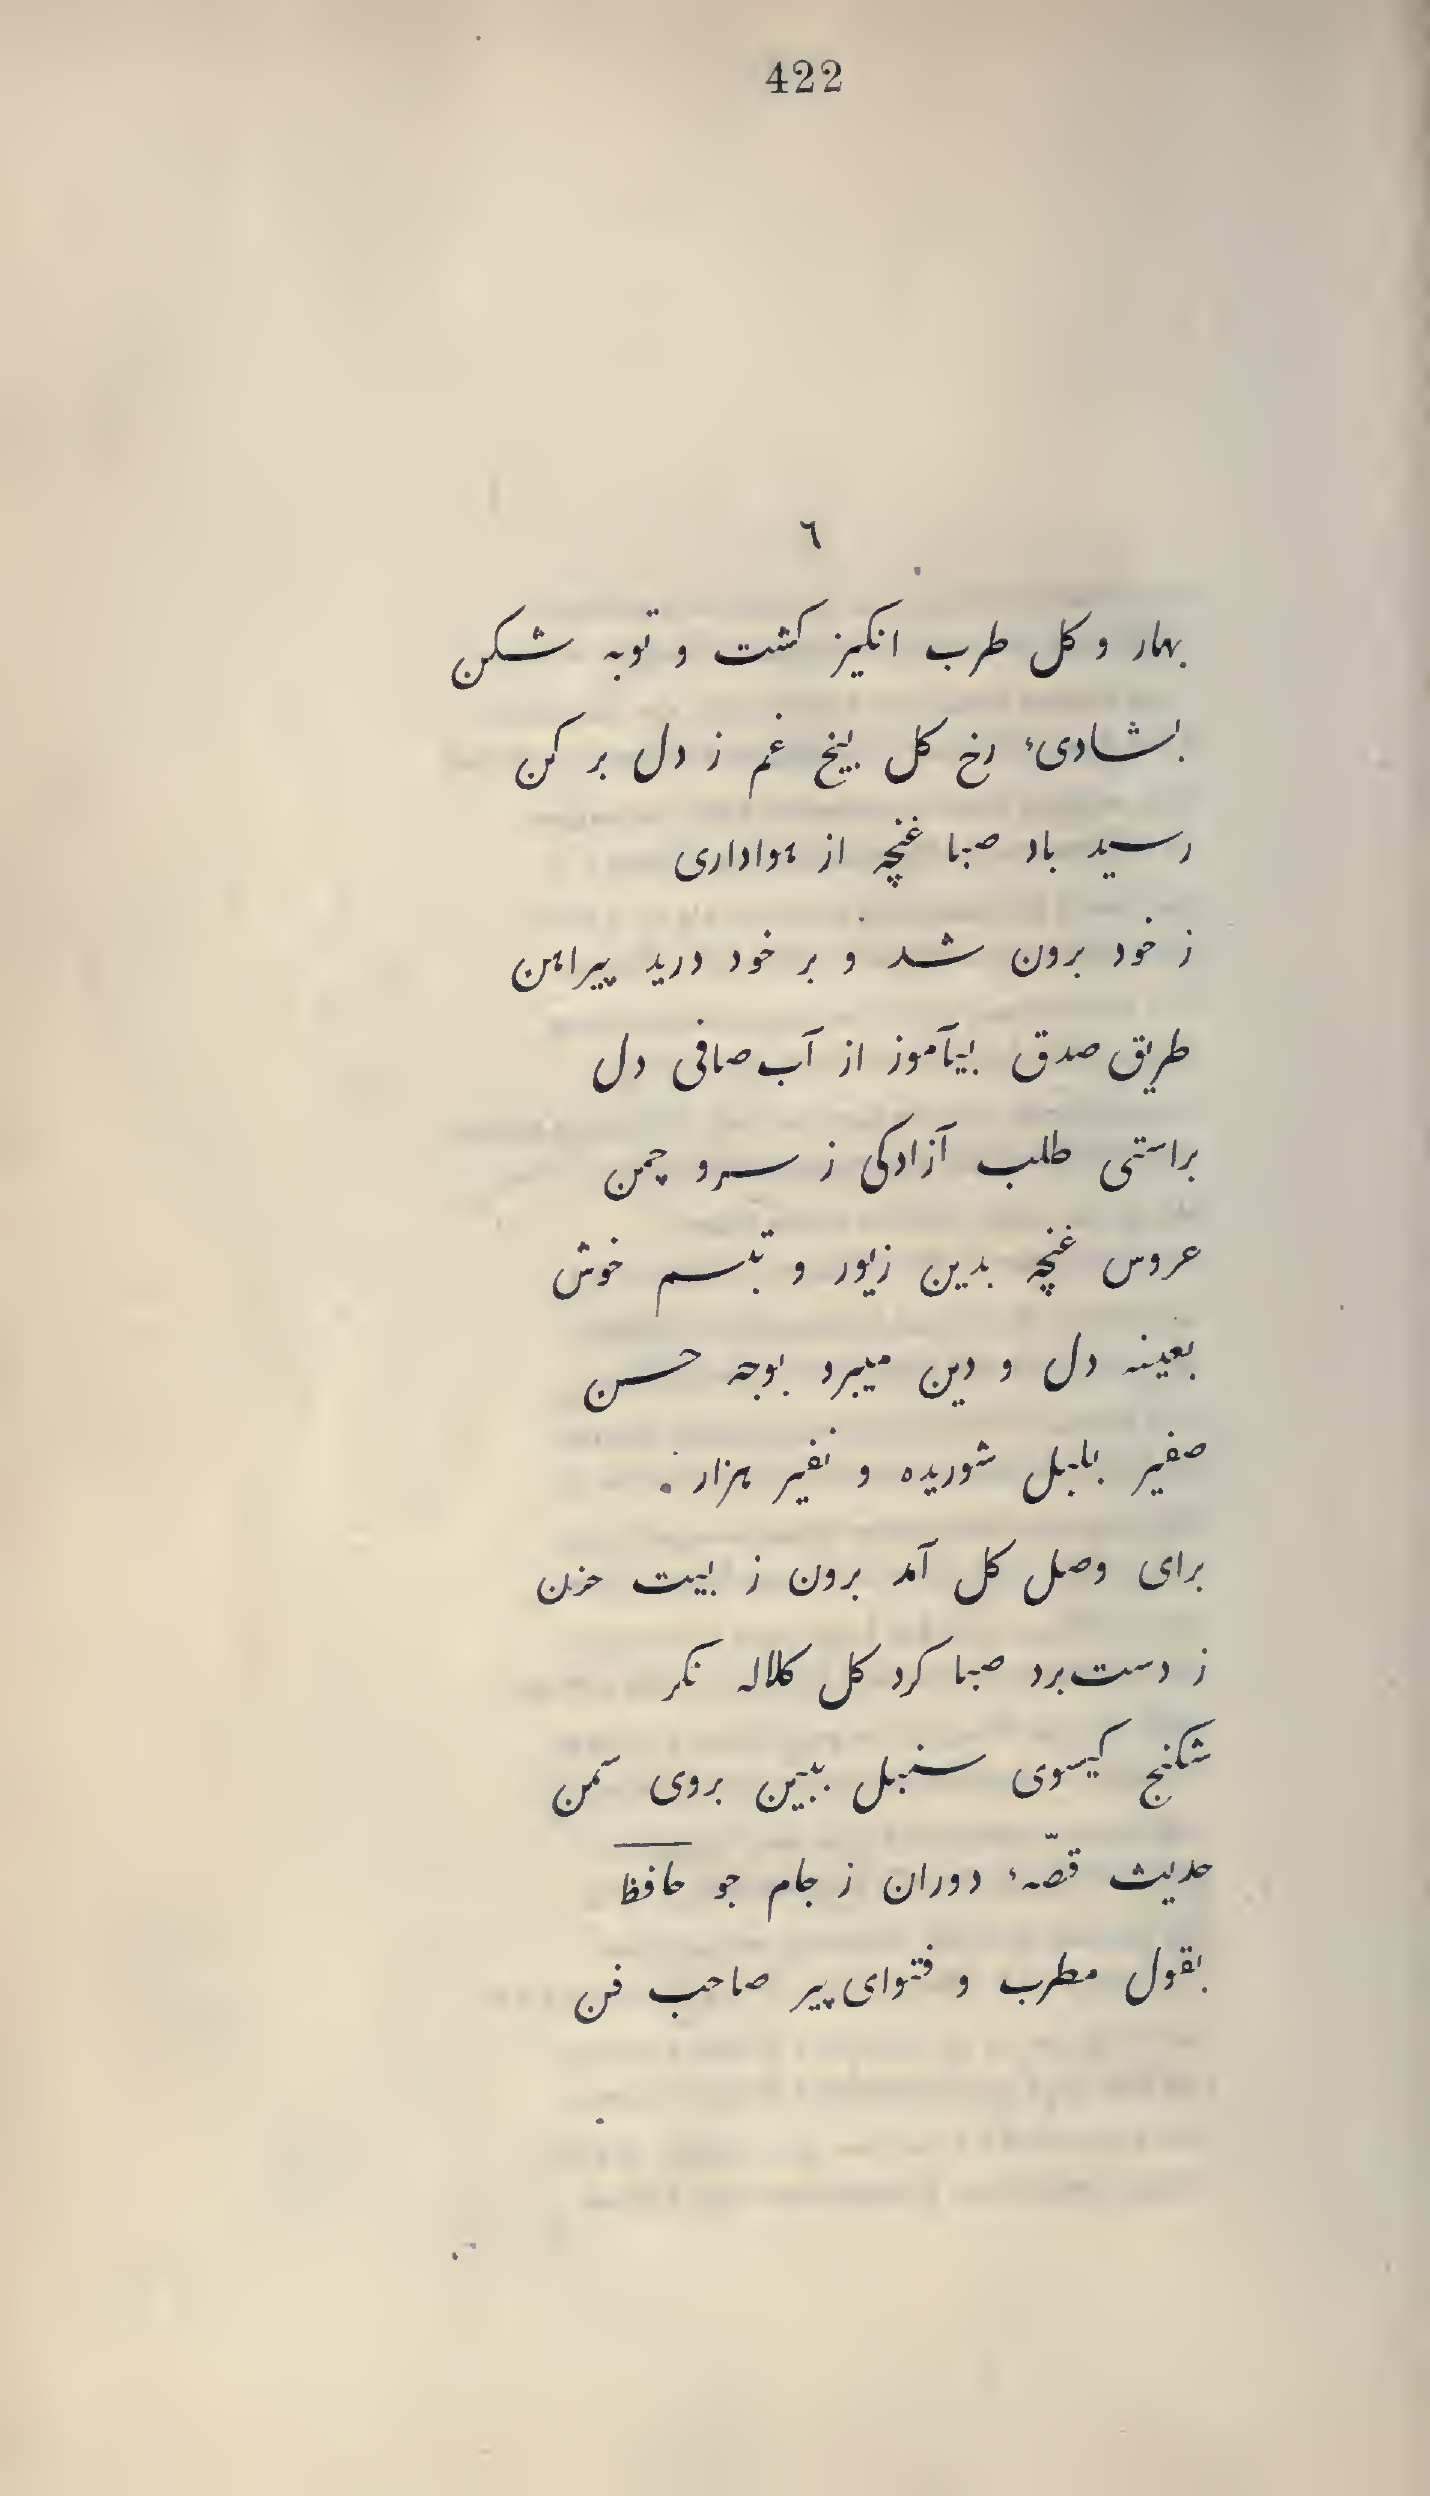 422
٦
بهار و کل طرب انکیز کشت و توبه شکن
بشادیء رخ کل بیخ غم ز دل بر کن
رسید باد صبا غنچه از هواداری
ز خود برون شد و بر خود درید پیراهن
طریق صدق بیآموز از آب صافی دل
براستی طلب آزادکی ز سرو چمن
عروس غنچه بدین زیور و تبسم خوش
بعینه دل و دین میبرد بوجه حسن
صفیر بلبل شوریده و نفیر هزار
برای وصل کل آمد برون ز بیت حزن
ز دست‌برد صبا کرد کل کلاله نکر
شکنج کیسوی سنبل ببین بروی سمن
حدیث قصّهء دوران ز جام جو حافظ
بقول مطرب و فتوای پیر صاحب فن